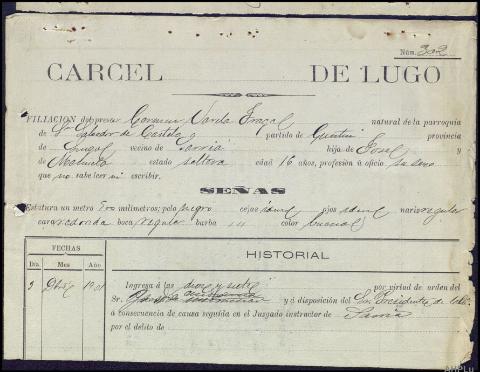 Núm. 302
CARCEL DE LUGO
FILIACION del preser Carmen Varela Fragal natural de la parroquia
de Sn Salvador de Castelo partido de Guntin provincia
de Lugo vecino de Sarria hija de José y
de Manuela estado soltera edad 16 años, profesión ú oficio su sexo
que no sabe leer ni escribir.
SEÑAS
Estatura un metro 500 milímetros; pelo negro cejas idem ojos idem nariz regular
cara redonda boca regular barba color buenal
FECHAS
HISTORIAL
Día Mes Año
3 Dbre 1901 Ingresa á las diez y siete por virtud de orden del
Sr. y á disposición del Sr. Presidente de
á consecuencia de causa seguida en el Juzgado instructor de Sarria
por el delito de